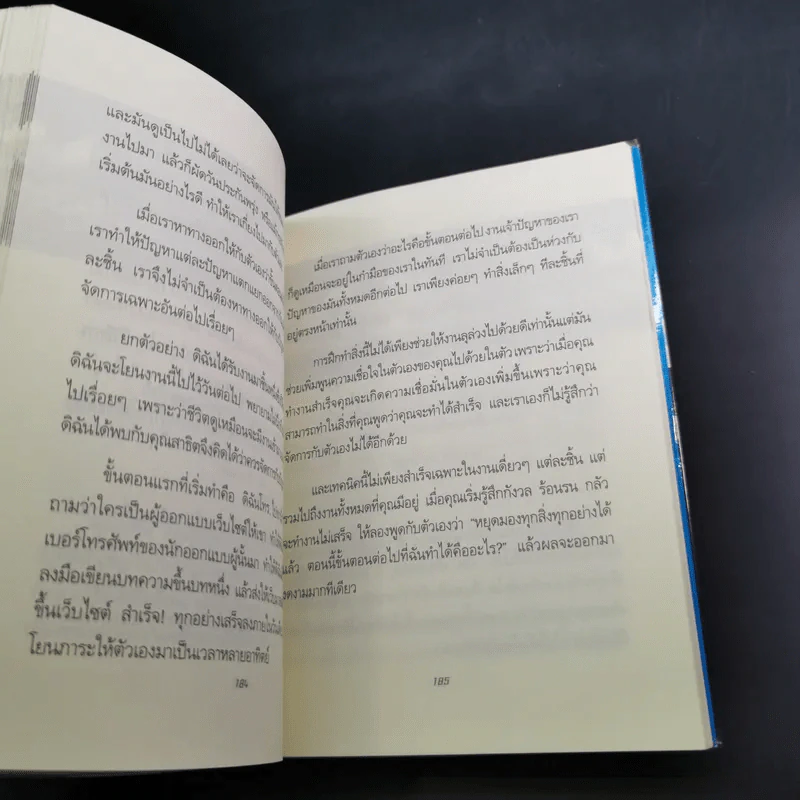 และมันดูเป็นไปไม่ได้เลยว่าจะจัดการ
งานไปมา แล้วก็ผัดวันประกันพรุ่ง
เริ่มต้นมันอย่างไรดี ทำให้เราเถียงไปมา
เมื่อเราหาทางออกให้กับตัวเอง
เราทำให้ปัญหาแต่ละปัญหาแตกแยกออก
ละชิ้น เราจึงไม่จำเป็นต้องหาทางออกให้
จัดการเฉพาะอันต่อไปเรื่อยๆ
ยกตัวอย่าง ดิฉันได้รับงานมาชิ้น
ดิฉันจะโยนงานนี้ไปไว้วันต่อไป พยายาม
ไปเรื่อยๆ เพราะว่าชีวิตดูเหมือนจะมีงาน
ดิฉันได้พบกับคุณสาธิตจึงคิดได้ว่าควรจัดการ
ขั้นตอนแรกที่เริ่มทำคือ ดิฉันโทร
ถามว่าใครเป็นผู้ออกแบบเว็บไซต์ให้เขา
เบอร์โทรศัพท์ของนักออกแบบผู้นั้นมา
ลงมือเขียนบทความขึ้นบทหนึ่ง แล้วส่งให้
ขึ้นเว็บไซต์ สำเร็จ! ทุกอย่างเสร็จลงภายใน
โยนภาระให้ตัวเองมาเป็นเวลาหลายอาทิตย์
184
เมื่อเราถามตัวเองว่าอะไรคือขั้นตอนต่อไป งานเจ้าปัญหาของเรา
ก็ดูเหมือนจะอยู่ในกำมือของเราในทันที เราไม่จำเป็นต้องเป็นห่วงกับ
ปัญหาของมันทั้งหมดอีกต่อไป เราเพียงค่อยๆ ทำสิ่งเล็กๆ ทีละชิ้นที่
อยู่ตรงหน้าเท่านั้น
การฝึกทำสิ่งนี้ไม่ได้เพียงช่วยให้งานลุล่วงไปด้วยดีเท่านั้นแต่มัน
ช่วยเพิ่มพูนความเชื่อใจในตัวเองของคุณไปด้วยในตัว เพราะว่าเมื่อคุณ
ทำงานสำเร็จคุณจะเกิดความเชื่อมั่นในตัวเองเพิ่มขึ้นเพราะว่าคุณ
สามารถทำในสิ่งที่คุณพูดว่าคุณจะทำได้สำเร็จ และเราเองก็ไม่รู้สึกว่า
จัดการกับตัวเองไม่ได้อีกด้วย
และเทคนิคนี้ไม่เพียงสำเร็จเฉพาะในงานเดี่ยวๆ แต่ละชิ้น แต่
รวมไปถึงงานทั้งหมดที่คุณมีอยู่ เมื่อคุณเริ่มรู้สึกกังวล ร้อนรน กลัว
จะทำงานไม่เสร็จ ให้ลองพูดกับตัวเองว่า “หยุดมองทุกสิ่งทุกอย่างได้
แล้ว ตอนนี้ขั้นตอนต่อไปที่ฉันทำได้คืออะไร?” แล้วผลจะออกมา
งดงามมากทีเดียว
185